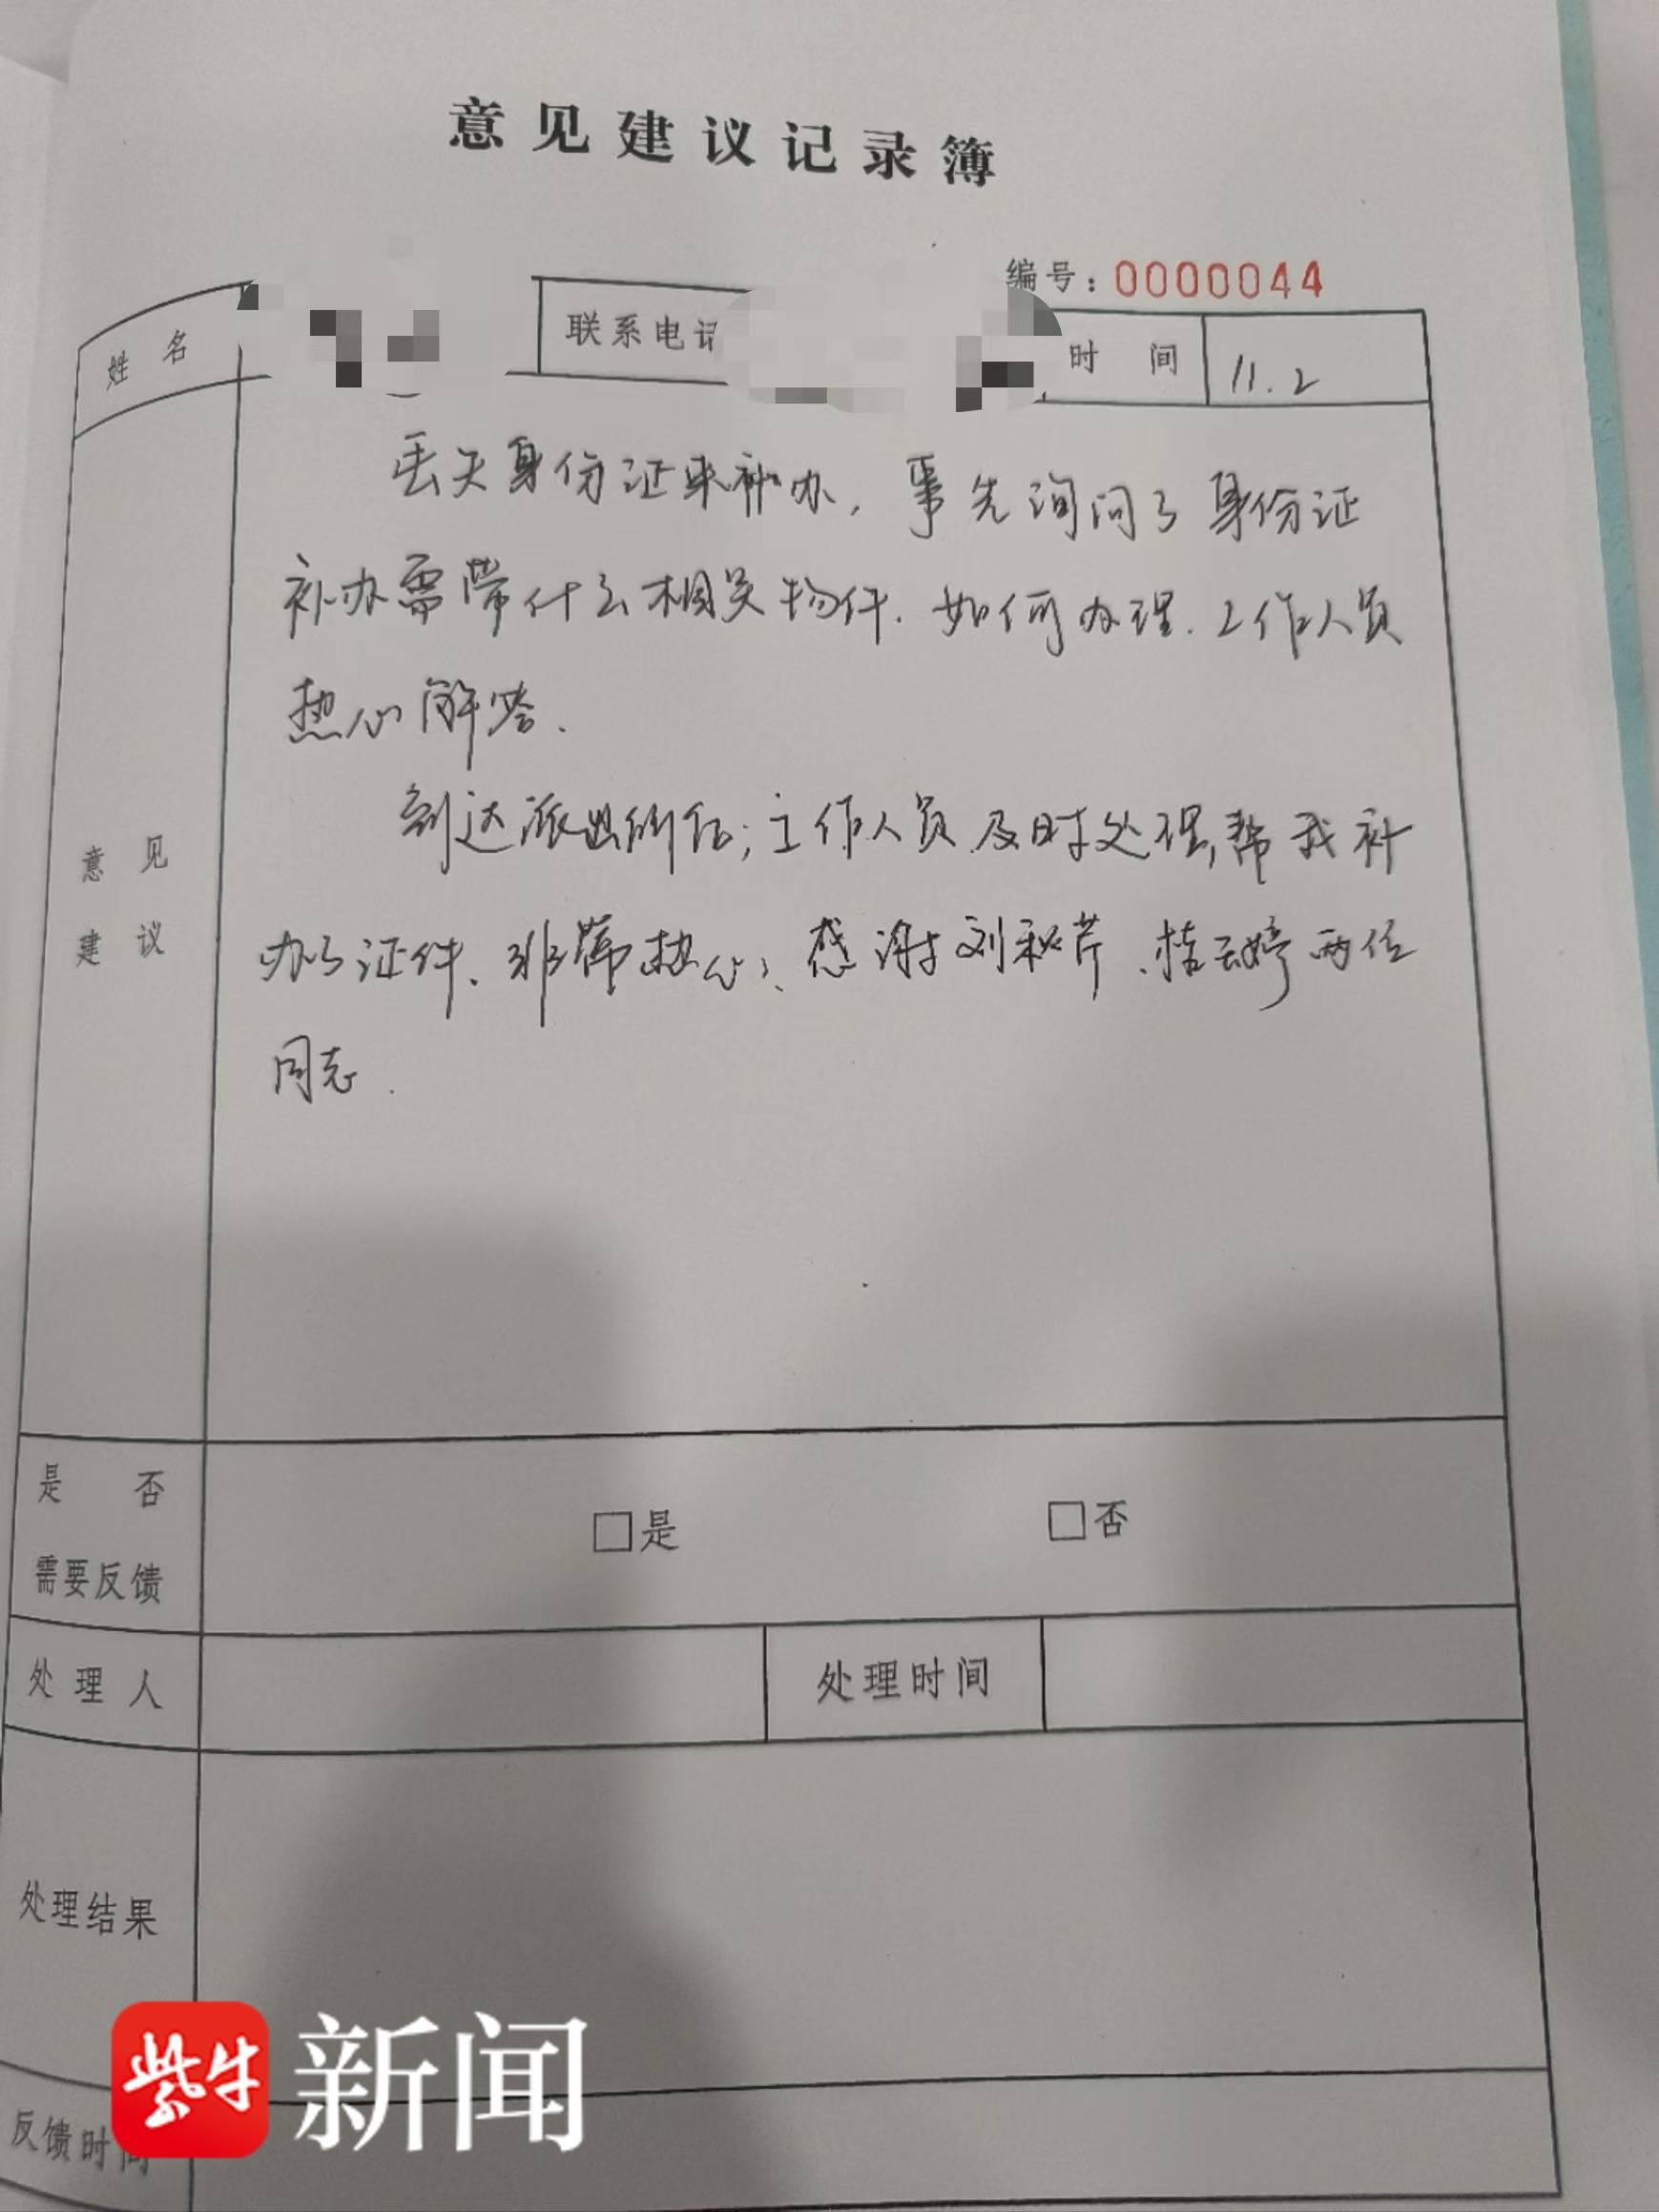 意见建议记录簿
编号：0000044
姓名 联系电 时间 11.2
丢失身份证来补办，事先询问了身份证
补办需带什么相关物件．如何办理．工作人员
热心解答．
到达派出所后；工作人员及时处理，帮我补
办了证件、非常热心、感谢刘秋芹、桂云婷两位
同志．
意见
建议
是否
需要反馈
□是 □否
处理人 处理时间
处理结果
反馈时间
紫牛新闻